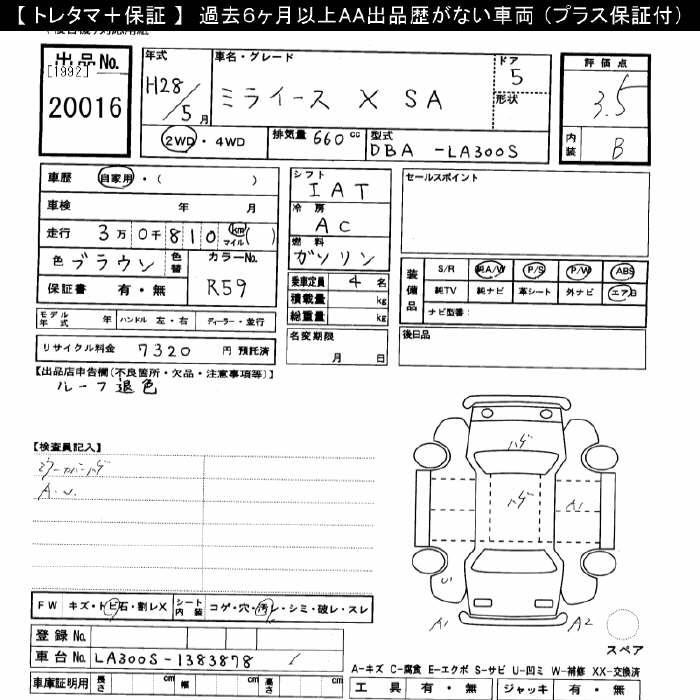 【 トレタマ＋保証 】 過去6ヶ月以上AA出品歴がない車両 (プラス保証付)
出品No.
[1992]
20016
年式
H28/5月
車名・グレード
ミライース X SA
ドア
5
形状
評価点
3.5
2WD・4WD
排気量 660 cc
型式
DBA -LA300S
内装
B
車歴 自家用・( )
車検 年 月
走行 3万0千810 km マイル( )
色 ブラウン 色替
カラーNo.
R59
保証書 有・無
シフト
IAT
冷房
AC
燃料
ガソリン
乗車定員 4 名
積載量 kg
総重量 kg
セールスポイント
装備品
S/R 純A/W P/S P/W ABS
純TV 純ナビ 革シート 外ナビ エアB
ナビ型番:
モデル年式 年 ハンドル 左・右 ディーラー・並行
リサイクル料金 7320 円 預託済
名変期限
月 日
後日品
【出品店申告欄(不良箇所・欠品・注意事項等)】
ルーフ退色
【検査員記入】
A.U.
ハゲ
ハゲ
A1
U1
A1
A2
スペア
FW キズ・トビ石・割レX シート内装 コゲ・穴・汚レ・シミ・破レ・スレ
登録No.
車台No. LA300S-1383878
A-キズ C-腐食 E-エクボ S-サビ U-凹ミ W-補修 XX-交換済
車庫証明用 長さ cm 幅 cm 高さ cm
工具 有・無 ジャッキ 有・無